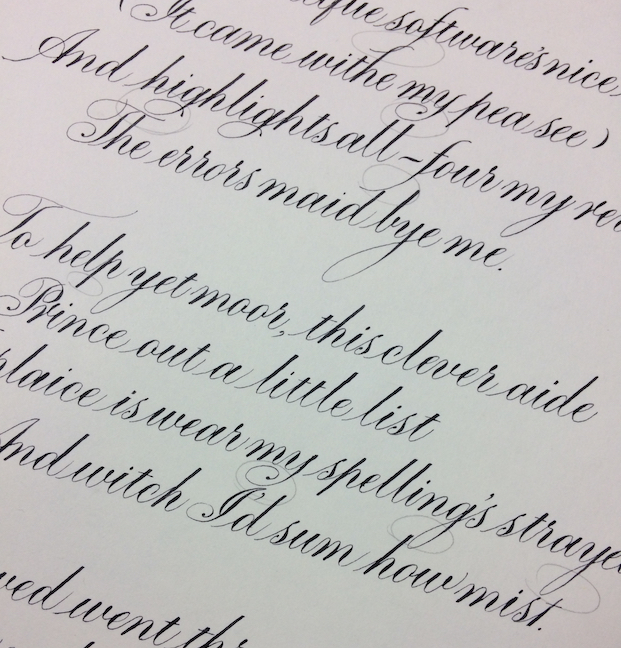 software's nice,
(It came withe my pea see)
And highlights all-four my
The errors maid bye me.
To help yet moor, this clever aide
Prince out a little list
plaice is wear my spelling's
And witch I'd sum how mist.
went